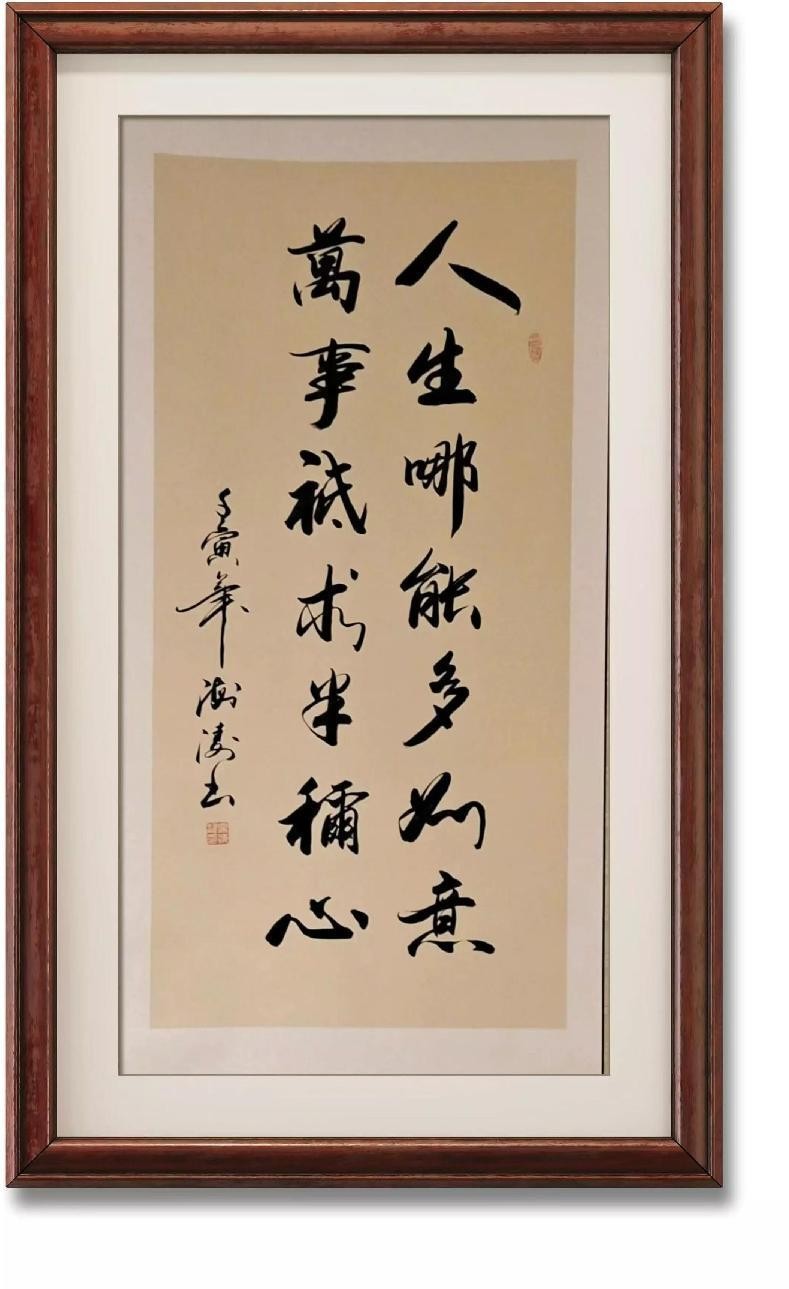 人生哪能多如意
萬事祗求半稱心
壬寅年海濤書